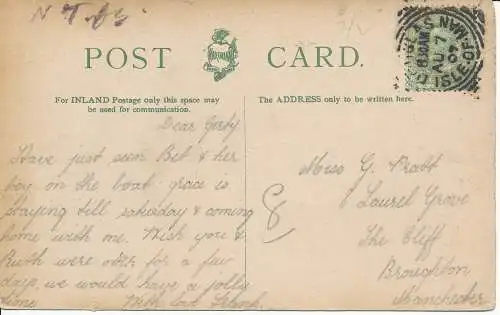 N T
POST CARD.
For INLAND Postage only this space may
be used for communication.
The ADDRESS only to be written here.
DOUGLAS
8.30AM
AU 7
09
ISLE-OF-MAN
Dear Gerty
Have just seen Bet & her
boy on the boat grace is
staying till saturday & coming
home with me. Wish you &
Ruth were over for a few
days, we would have a jolly
time With love Frank.
8
Miss G. Pratt
6 Laurel Grove
The Cliff
Broughton
Manchester